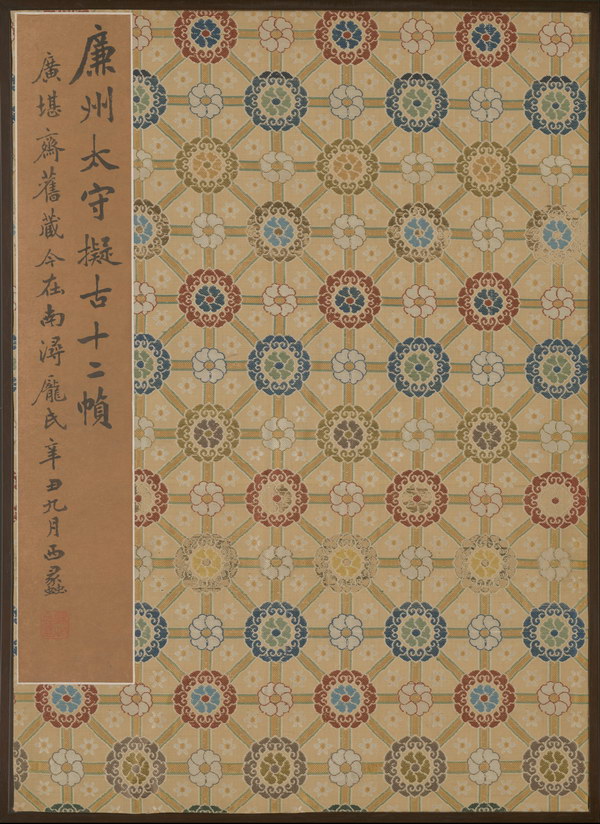 廉州太守擬古十二幀
廣堪齋舊藏今在南潯龐氏辛丑九月西蠡